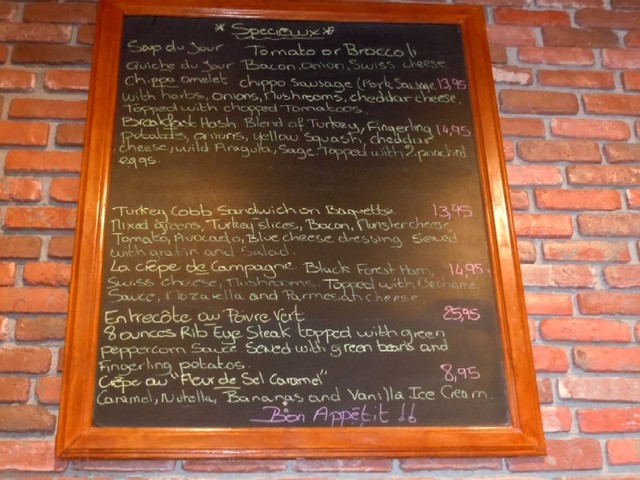 * Speciaux *
Soup du Jour Tomato or Broccoli
Quiche du Jour Bacon, onion, Swiss cheese
Chippo omelet chippo sausage (Pork Sausage 13,95
with herbs, Onions, Mushrooms, cheddar cheese.
Topped with chopped Tomatoes.
Breakfast Hash Blend of Turkey, Fingerling 14,95
potatos, onions, yellow squash, cheddar
cheese, wild Arugula, Sage. Topped with 2 poached
eggs.
Turkey Cobb Sandwich on Baguette 13,95
Mixed greens, Turkey slices, Bacon, Munster cheese,
Tomato, Avocato, Blue cheese dressing. Served
with gratin and Salad.
La crêpe de Campagne Black Forest Ham, 14,95
Swiss cheese, Mushrooms. Topped with Bechamel
Sauce, Mozarella and Parmesan cheese.
Entrecôte au Poivre Vert 25,95
8 ounces Rib Eye Steak topped with green
peppercorn Sauce. Served with green beans and
Fingerling potatos.
Crêpe au "Fleur de Sel Caramel" 8,95
Caramel, Nutella, Bananas and Vanilla Ice Cream.
Bon Appétit !!